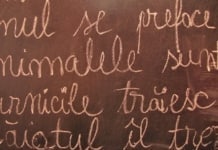 mul se preface
nimalele sun
urnicile trăiesc
băiatul îl tre